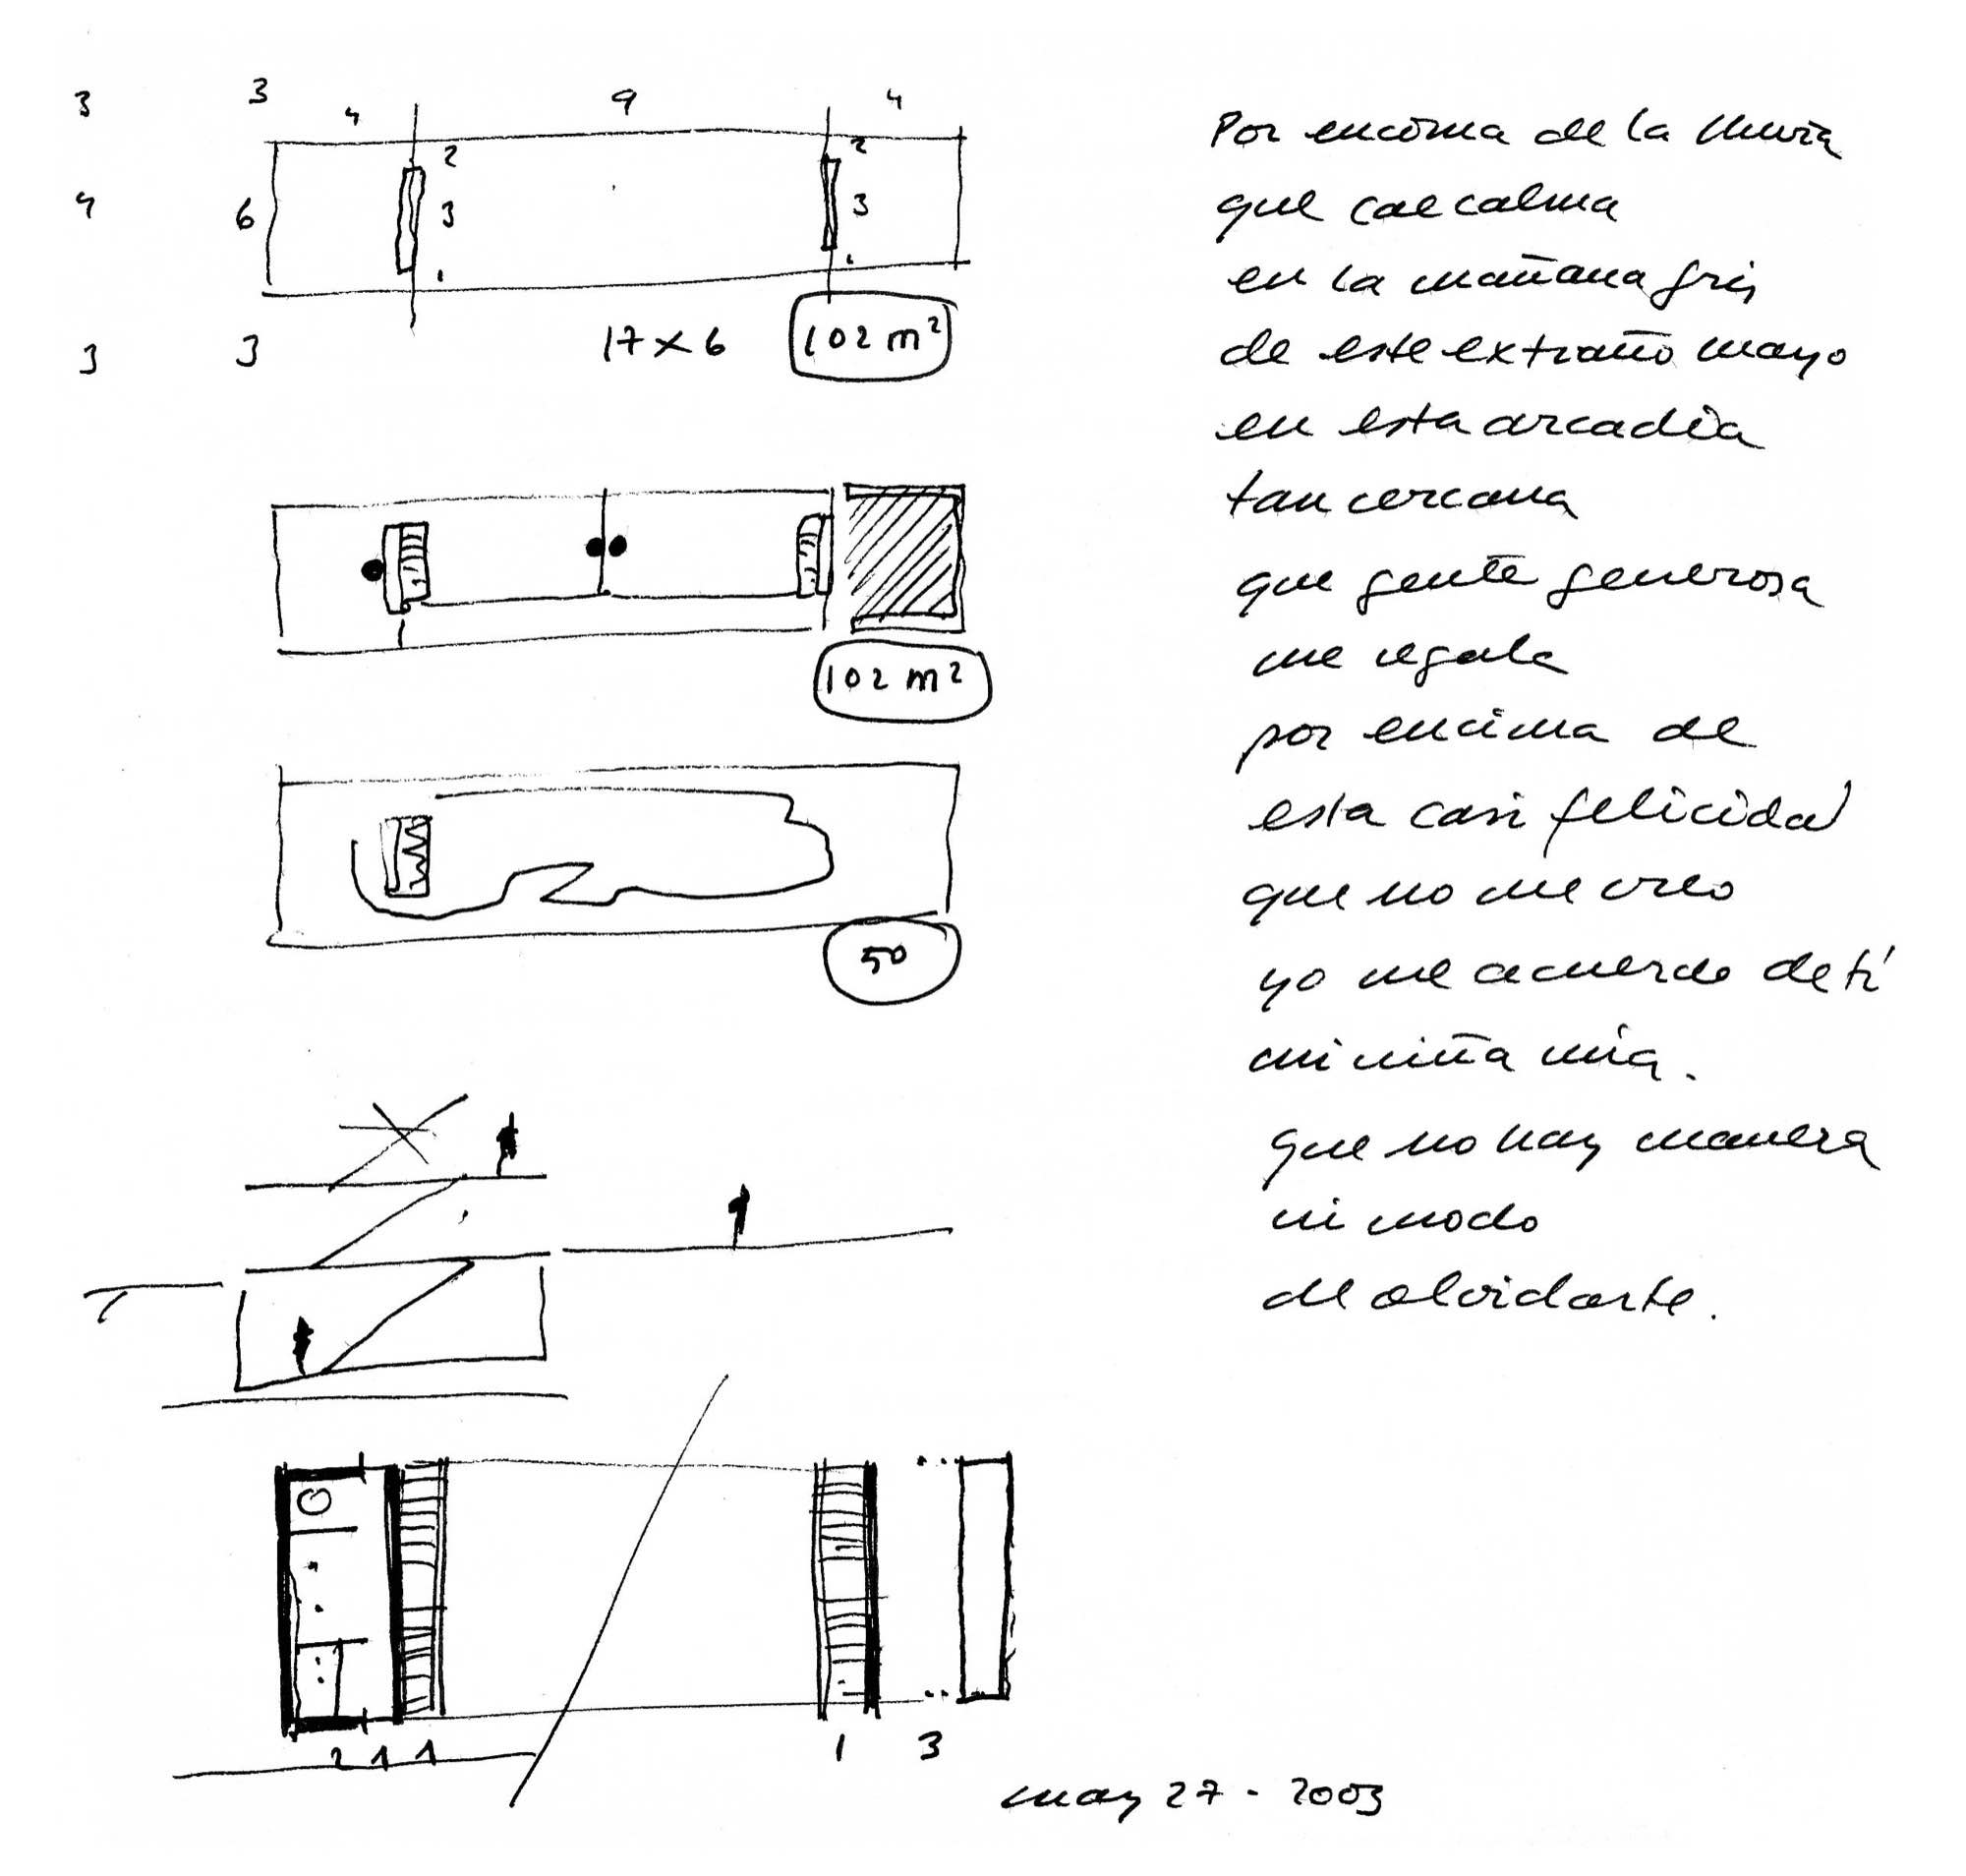 3 3 4 9 4
2 2
4 6 3 3
1 1
3 3 17 x 6 102 m²
102 m²
50
2 1 1 1 3
Por encima de la lluvia
que cae calma
en la mañana gris
de este extraño mayo
en esta arcadia
tan cercana
que gente generosa
me regala
por encima de
esta casi felicidad
que no me creo
yo me acuerdo de tí
mi niña mía.
que no hay manera
ni modo
de olvidarte.
may 27 - 2003